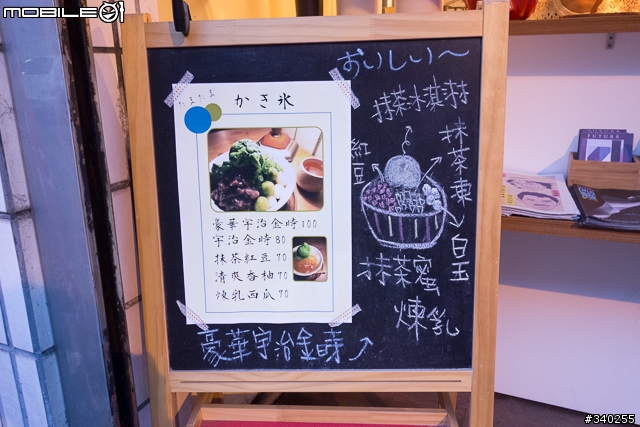 MOBILE01
おいしい～
たまたま
かき氷
抹茶冰淇淋
抹茶凍
紅豆
白玉
抹茶蜜
煉乳
豪華宇治金時 100
宇治金時 80
抹茶紅豆 70
清爽香柚 70
煉乳西瓜 70
豪華宇治金時
FUTURE
#340255